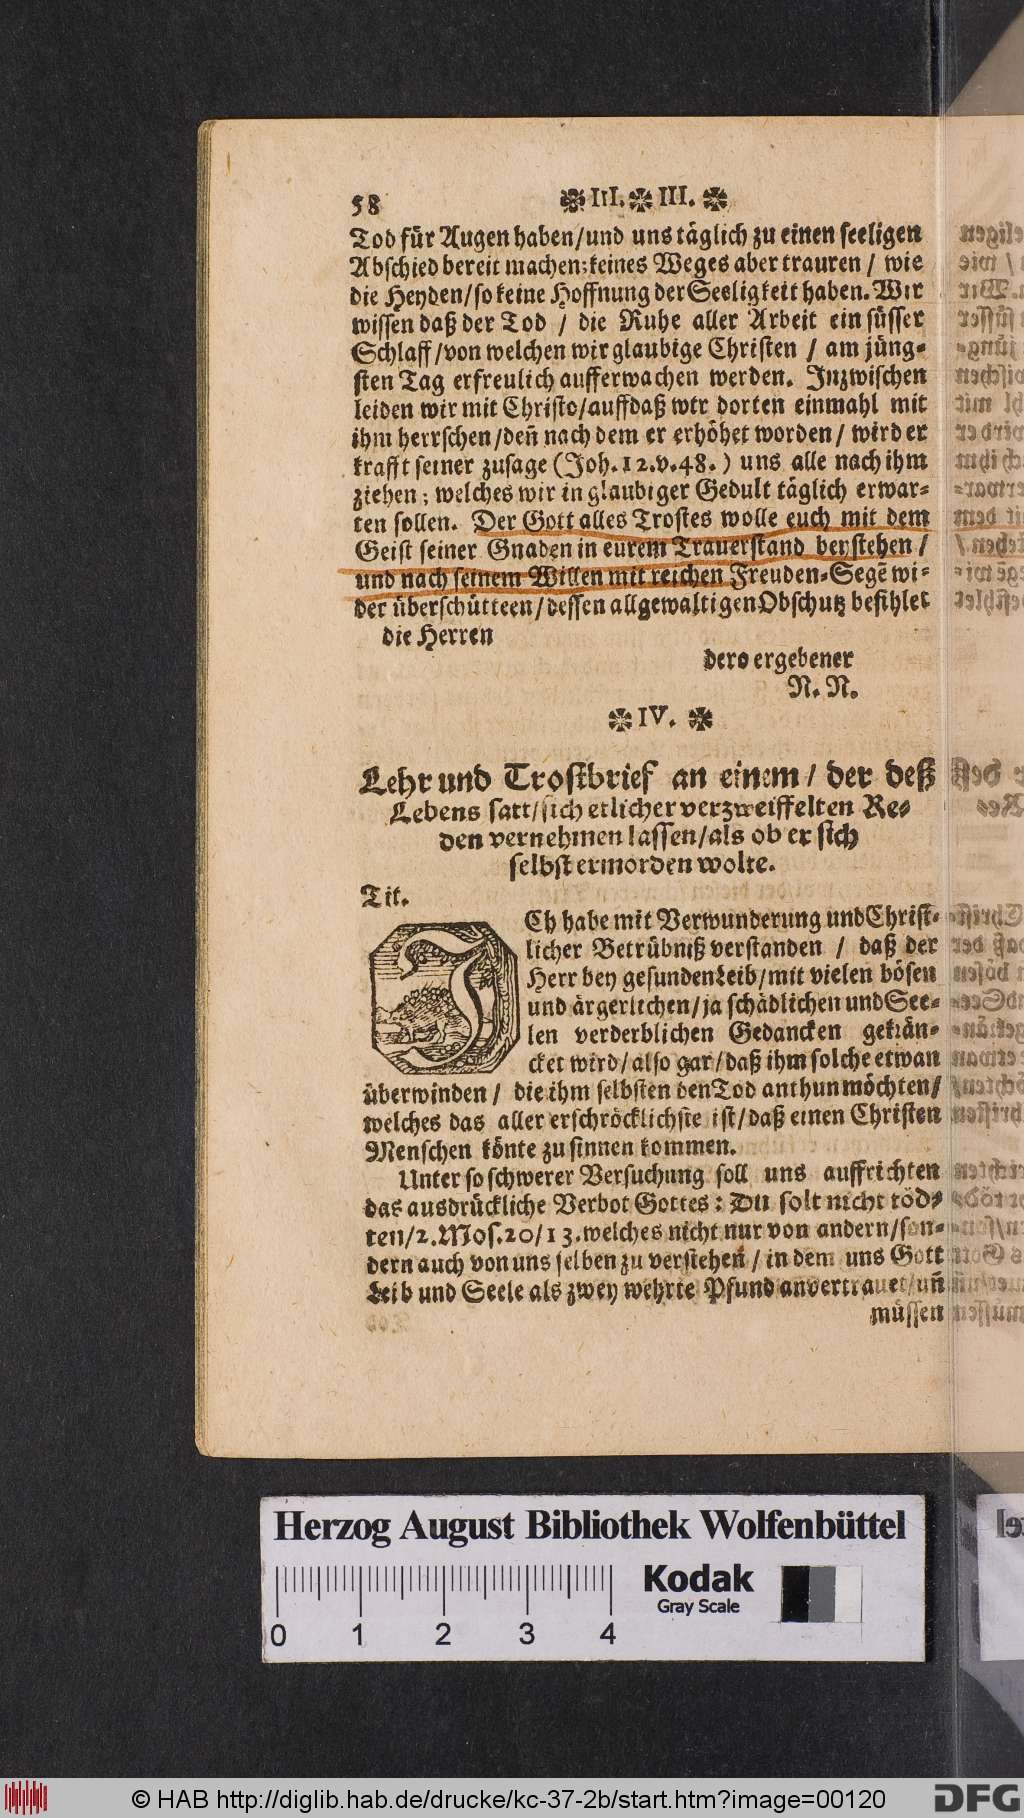 58 III. III.
Tod für Augen haben/und uns täglich zu einen seeligen
Abschied bereit machen; keines Weges aber trauren / wie
die Heyden/so keine Hoffnung der Seeligkeit haben. Wir
wissen daß der Tod / die Ruhe aller Arbeit ein süsser
Schlaff/von welchen wir glaubige Christen / am jüng-
sten Tag erfreulich aufferwachen werden. Inzwischen
leiden wir mit Christo/auffdaß wir dorten einmahl mit
ihm herrschen/deñ nach dem er erhöhet worden/ wird er
krafft seiner zusage (Joh. 12. v. 48.) uns alle nach ihm
ziehen; welches wir in glaubiger Gedult täglich erwar-
ten sollen. Der Gott alles Trostes wolle euch mit dem
Geist seiner Gnaden in eurem Trauerstand beystehen /
und nach seinem Willen mit reichen Freuden-Segẽ wi-
der überschütteen/dessen allgewaltigen Obschutz befihlet
die Herren
dero ergebener
N. N.
IV.
Lehr und Trostbrief an einem/ der deß
Lebens satt/sich etlicher verzweiffelten Re-
den vernehmen lassen/als ob er sich
selbst ermorden wolte.
Tit.
ICh habe mit Verwunderung und Christ-
licher Betrübniß verstanden / daß der
Herr bey gesunden Leib/mit vielen bösen
und ärgerlichen/ja schädlichen und See-
len verderblichen Gedancken gekrän-
cket wird/also gar/daß ihm solche etwan
überwinden / die ihm selbsten den Tod anthun möchten/
welches das aller erschröcklichste ist/daß einen Christen
Menschen könte zu sinnen kommen.
Unter so schwerer Versuchung soll uns auffrichten
das ausdrückliche Verbot Gottes: DU solt nicht töd-
ten/2. Mos. 20/13. welches nicht nur von andern/son-
dern auch von uns selben zu verstehen / in dem uns Gott
Leib und Seele als zwey wehrte Pfund anvertrauet/uñ
müssen
Herzog August Bibliothek Wolfenbüttel
Kodak
Gray Scale
0 1 2 3 4
© HAB http://diglib.hab.de/drucke/kc-37-2b/start.htm?image=00120
DFG